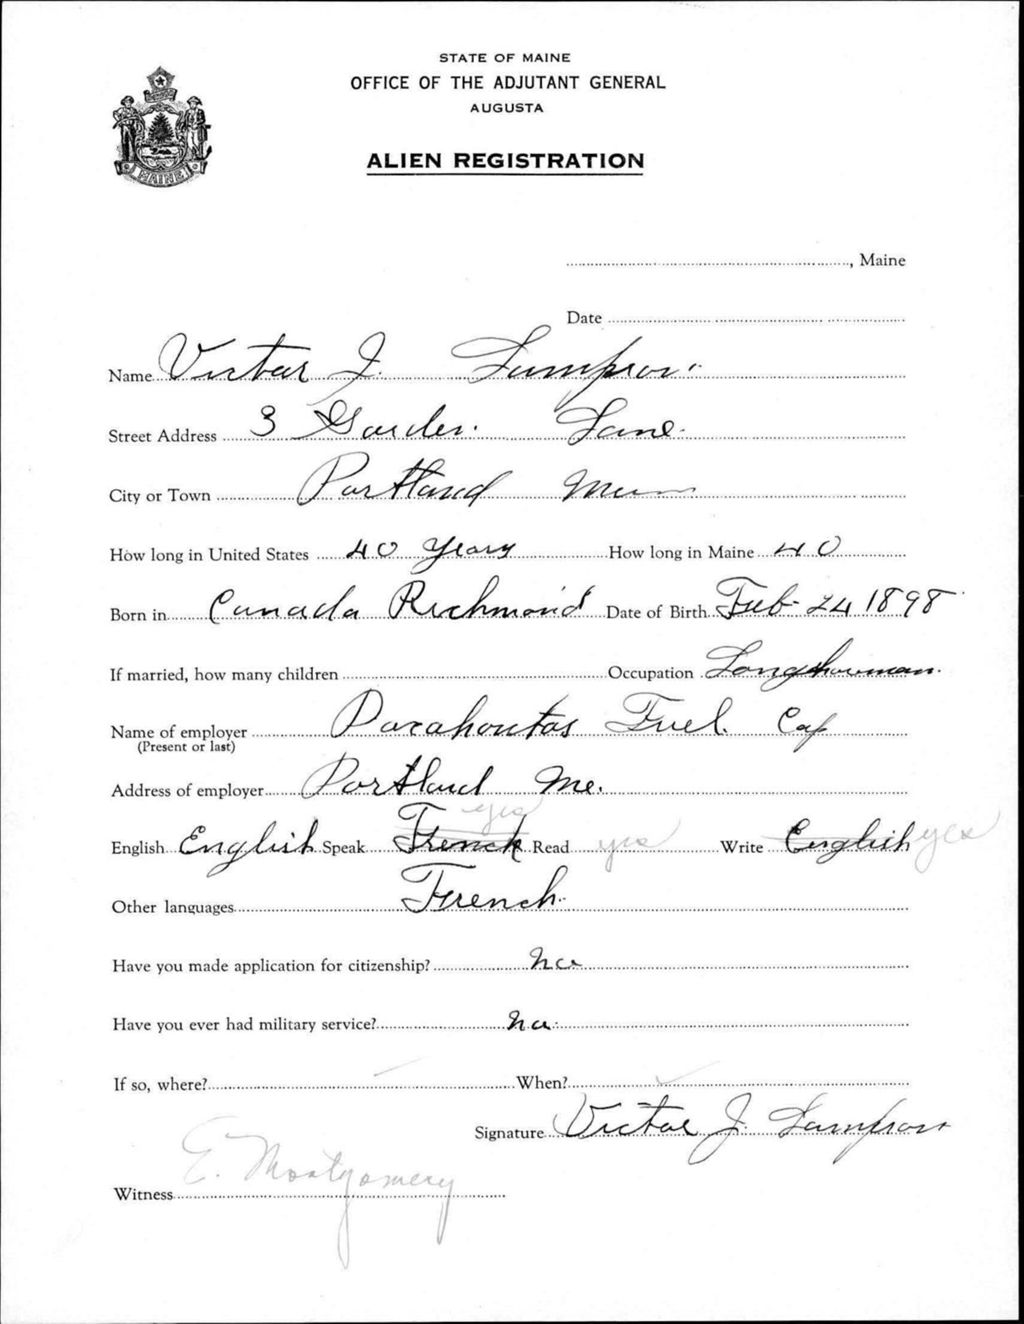 STATE OF MAINE
OFFICE OF THE ADJUTANT GENERAL
AUGUSTA
ALIEN REGISTRATION
MAINE
, Maine
Date
Name Victor J. Lampron
Street Address 3 Garden Lane
City or Town Portland
How long in United States 40 years How long in Maine 40
Born in Canada Richmond Date of Birth Feb- 24 1898
If married, how many children Occupation Longshoreman
Name of employer Pocahontas Fuel.
(Present or last)
Address of employer Portland Me.
yes
English English Speak French Read yes Write English yes
Other languages French
Have you made application for citizenship? no
Have you ever had military service? no
If so, where? When?
Signature Victor J. Lampron
Witness E. Montgomery